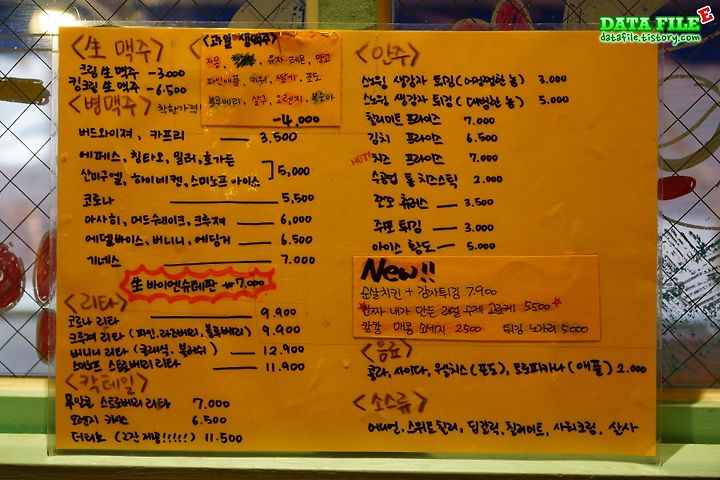 DATA FILE E
datafile.tistory.com
<生 맥주>
크림 生 맥주 -3.000
킹크림 生 맥주 -6.500
<병맥주> 착한가격!
버드와이져, 카프리 3.500
에페스, 칭타오, 밀러, 호가든
산미구엘, 하이네켄, 스미노프 아이스
5,000
코로나 5,500
아사히, 머드쉐이크, 크루져 6,000
에델바이스, 버니니, 에딩거 6.500
기네스 7.000
生 바이엔슈테판 ₩7,000
<리타>
코로나 리타 9.900
크루져 리타 (파인, 라즈베리, 블루베리) 9.900
버니니 리타 (클래식, 블러쉬) 12.900
스미노프 스토로베리 리타 11.900
<칵테일>
무알콜 스토로베리 리타 7.000
오렌지 6.500
더티호 (2잔 제공!!!!!) 11.500
<과일 생맥주>
자몽, 유자, 레몬, 망고
파인애플, 키위, 딸기, 포도
블루베리, 살구, 오렌지, 복숭아
-4,000
<안주>
스노윙 생감자 튀김 (어정쩡한 놈) 3.000
스노윙 생감자 튀김 (대빵한 놈) 5.000
칠리미트 프라이즈 7.000
김치 프라이즈 6.500
HOT! 치즈 프라이즈 7.000
수공업 롱 치즈스틱 2.000
쪼꼬 츄러스 3,500
쥐포 튀김 3.000
아이스 황도 5.000
New!!
순살치킨 + 감자튀김 7.900
진짜 내가 만든 리얼 수제 고로케 5500
칼칼 매콤 소세지 2500 튀김 노가리 5.000
<음료>
콜라, 사이다, 웰치스(포도), 트로피카나 (애플) 2.000
<소스류>
어니언, 스위트칠리, 딥갈릭, 칠리미트, 사워크림, 살사